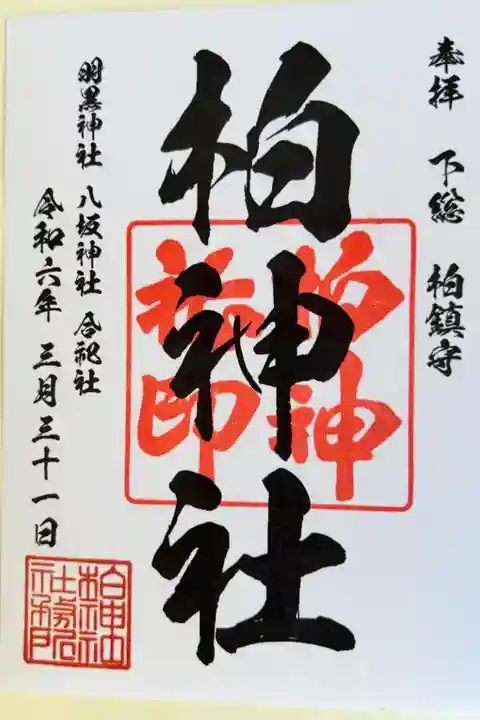 奉拝 下総 柏鎮守
柏神社
柏神
社印
羽黒神社 八坂神社 合祀社
令和六年 三月三十一日
柏神社
社務所